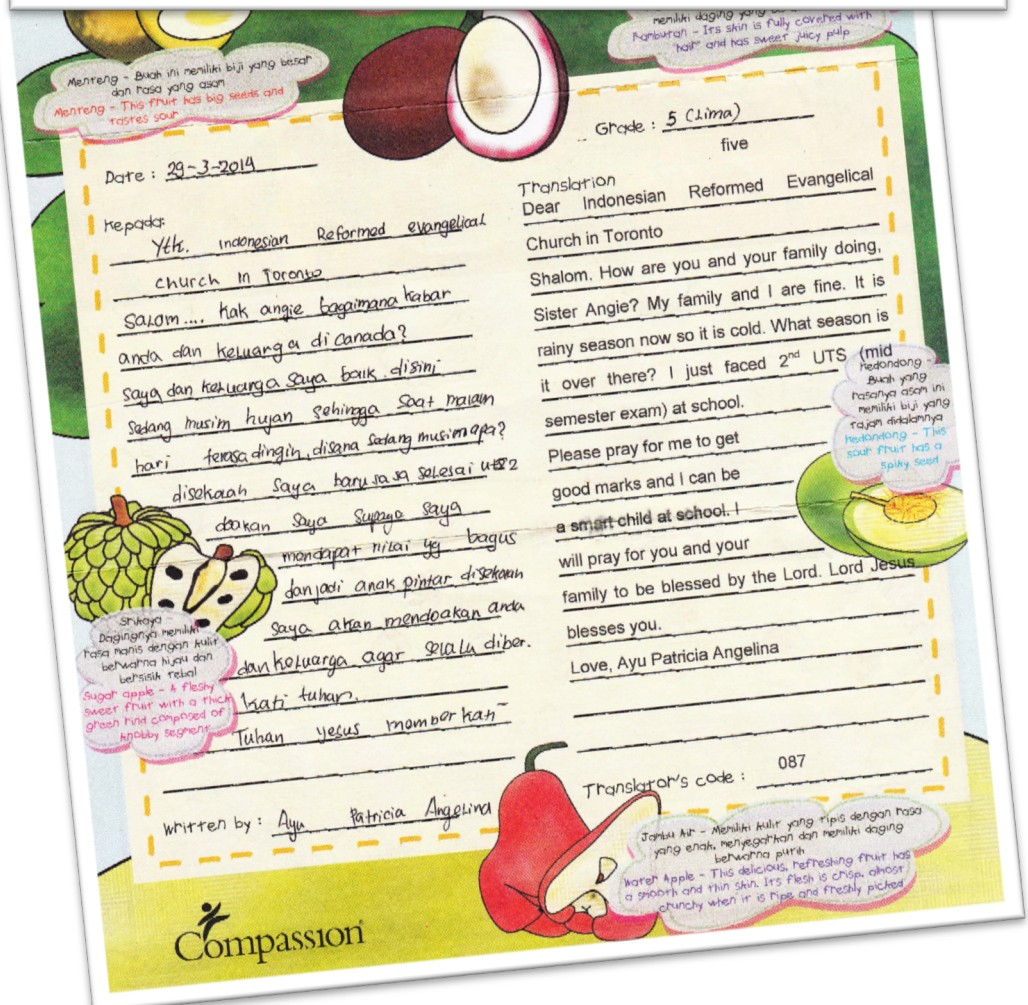 Menteng - Buah ini memiliki biji yang besar
dan rasa yang asam
Menteng - This fruit has big seeds and
tastes sour
memiliki daging yang
Rambutan - Its skin is fully covered with
"hair" and has sweet juicy pulp
Date : 29-3-2014
Grade : 5 (Lima)
five
Kepada:
Yth. Indonesian Reformed evangelical
church in Toronto
Salom.... kak angie bagaimana kabar
anda dan keluarga di canada?
saya dan keluarga saya baik. disini
sedang musim hujan sehingga saat malam
hari terasa dingin, disana sedang musim apa?
disekolah saya baru sa sa selesai uts 2
doakan saya supaya saya
mendapat nilai yg bagus
dan jadi anak pintar disekolah
saya akan mendoakan anda
dan keluarga agar selalu diber.
kati tuhan.
Tuhan yesus memberkati
written by : Ayu Patricia Angelina
Translation
Dear Indonesian Reformed Evangelical
Church in Toronto
Shalom. How are you and your family doing,
Sister Angie? My family and I are fine. It is
rainy season now so it is cold. What season is
it over there? I just faced 2nd UTS (mid
semester exam) at school.
Please pray for me to get
good marks and I can be
a smart child at school. I
will pray for you and your
family to be blessed by the Lord. Lord Jesus
blesses you.
Love, Ayu Patricia Angelina
Translator's code : 087
Kedondong -
Buah yang
rasanya asam ini
memiliki biji yang
tajam didalamnya
Kedondong - This
sour fruit has a
spiky seed
Srikaya
Dagingnya memiliki
rasa manis dengan kulit
berwarna hijau dan
bersisik tebal
Sugar apple - A fleshy
sweet fruit with a thick
green rind composed of
knobby segment
Jambu Air - Memiliki kulit yang tipis dengan rasa
yang enak, menyegarkan dan memiliki daging
berwarna putih
Water Apple - This delicious, refreshing fruit has
a smooth and thin skin. Its flesh is crisp, almost
crunchy when it is ripe and freshly picked
Compassion